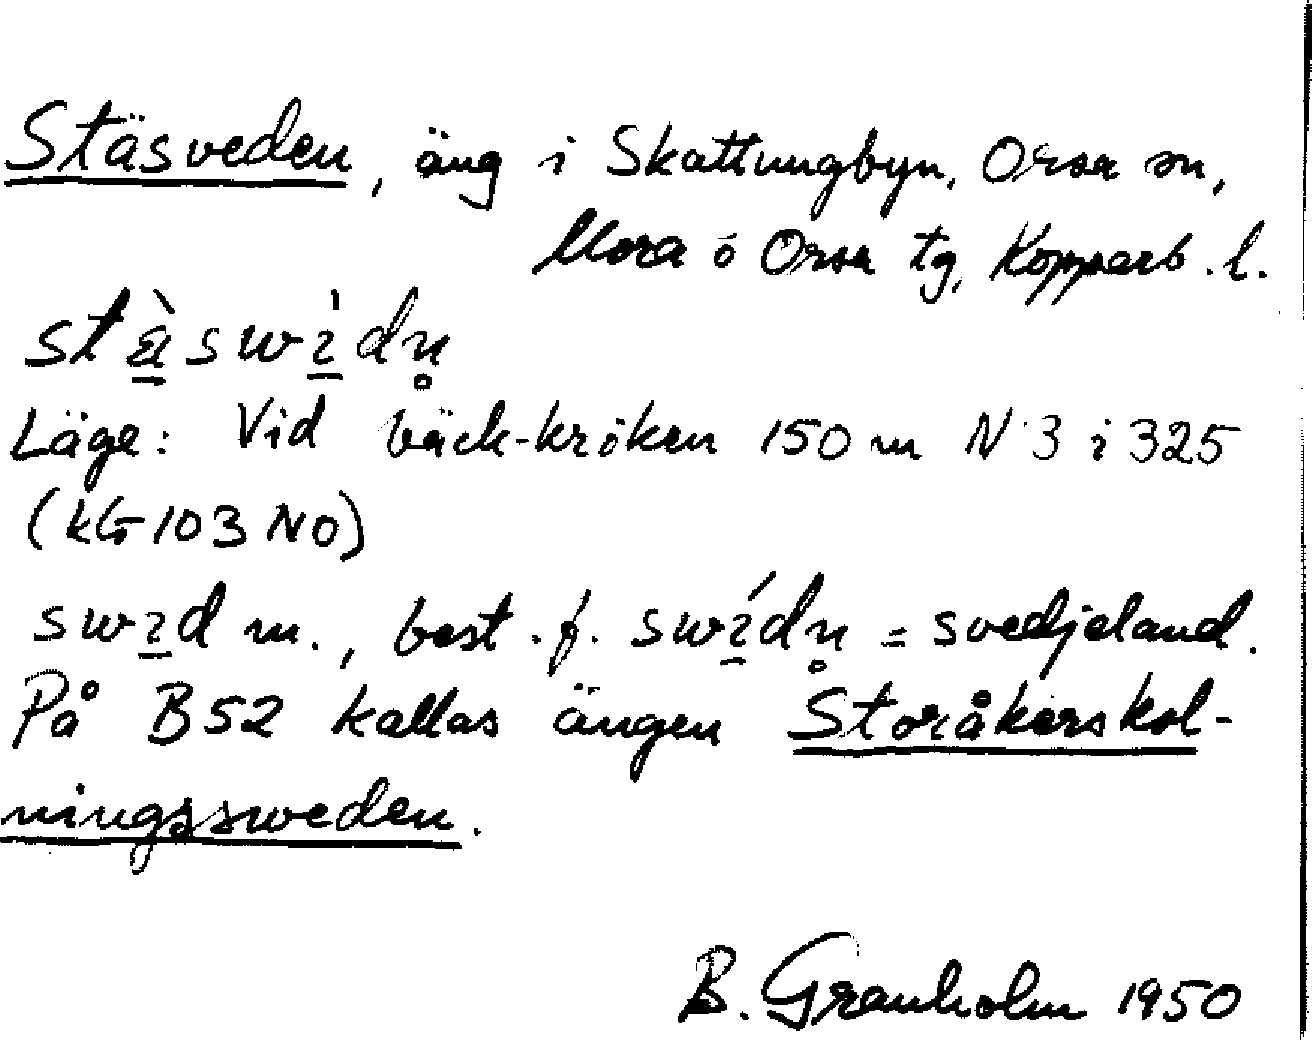 Stäsveden, äng i Skattungbyn, Orsa sn,
Mora o Orsa tg, Kopparb. l.
stä̱̀swì̱dn̥
Läge: Vid bäck-kröken 150 m N 3 i 325
(kG 103 NO)
swi̱d m., best. f. swí̱dn̥ = svedjeland.
På B52 kallas ängen Storåkerskol-
ningssweden.
B. Granholm 1950